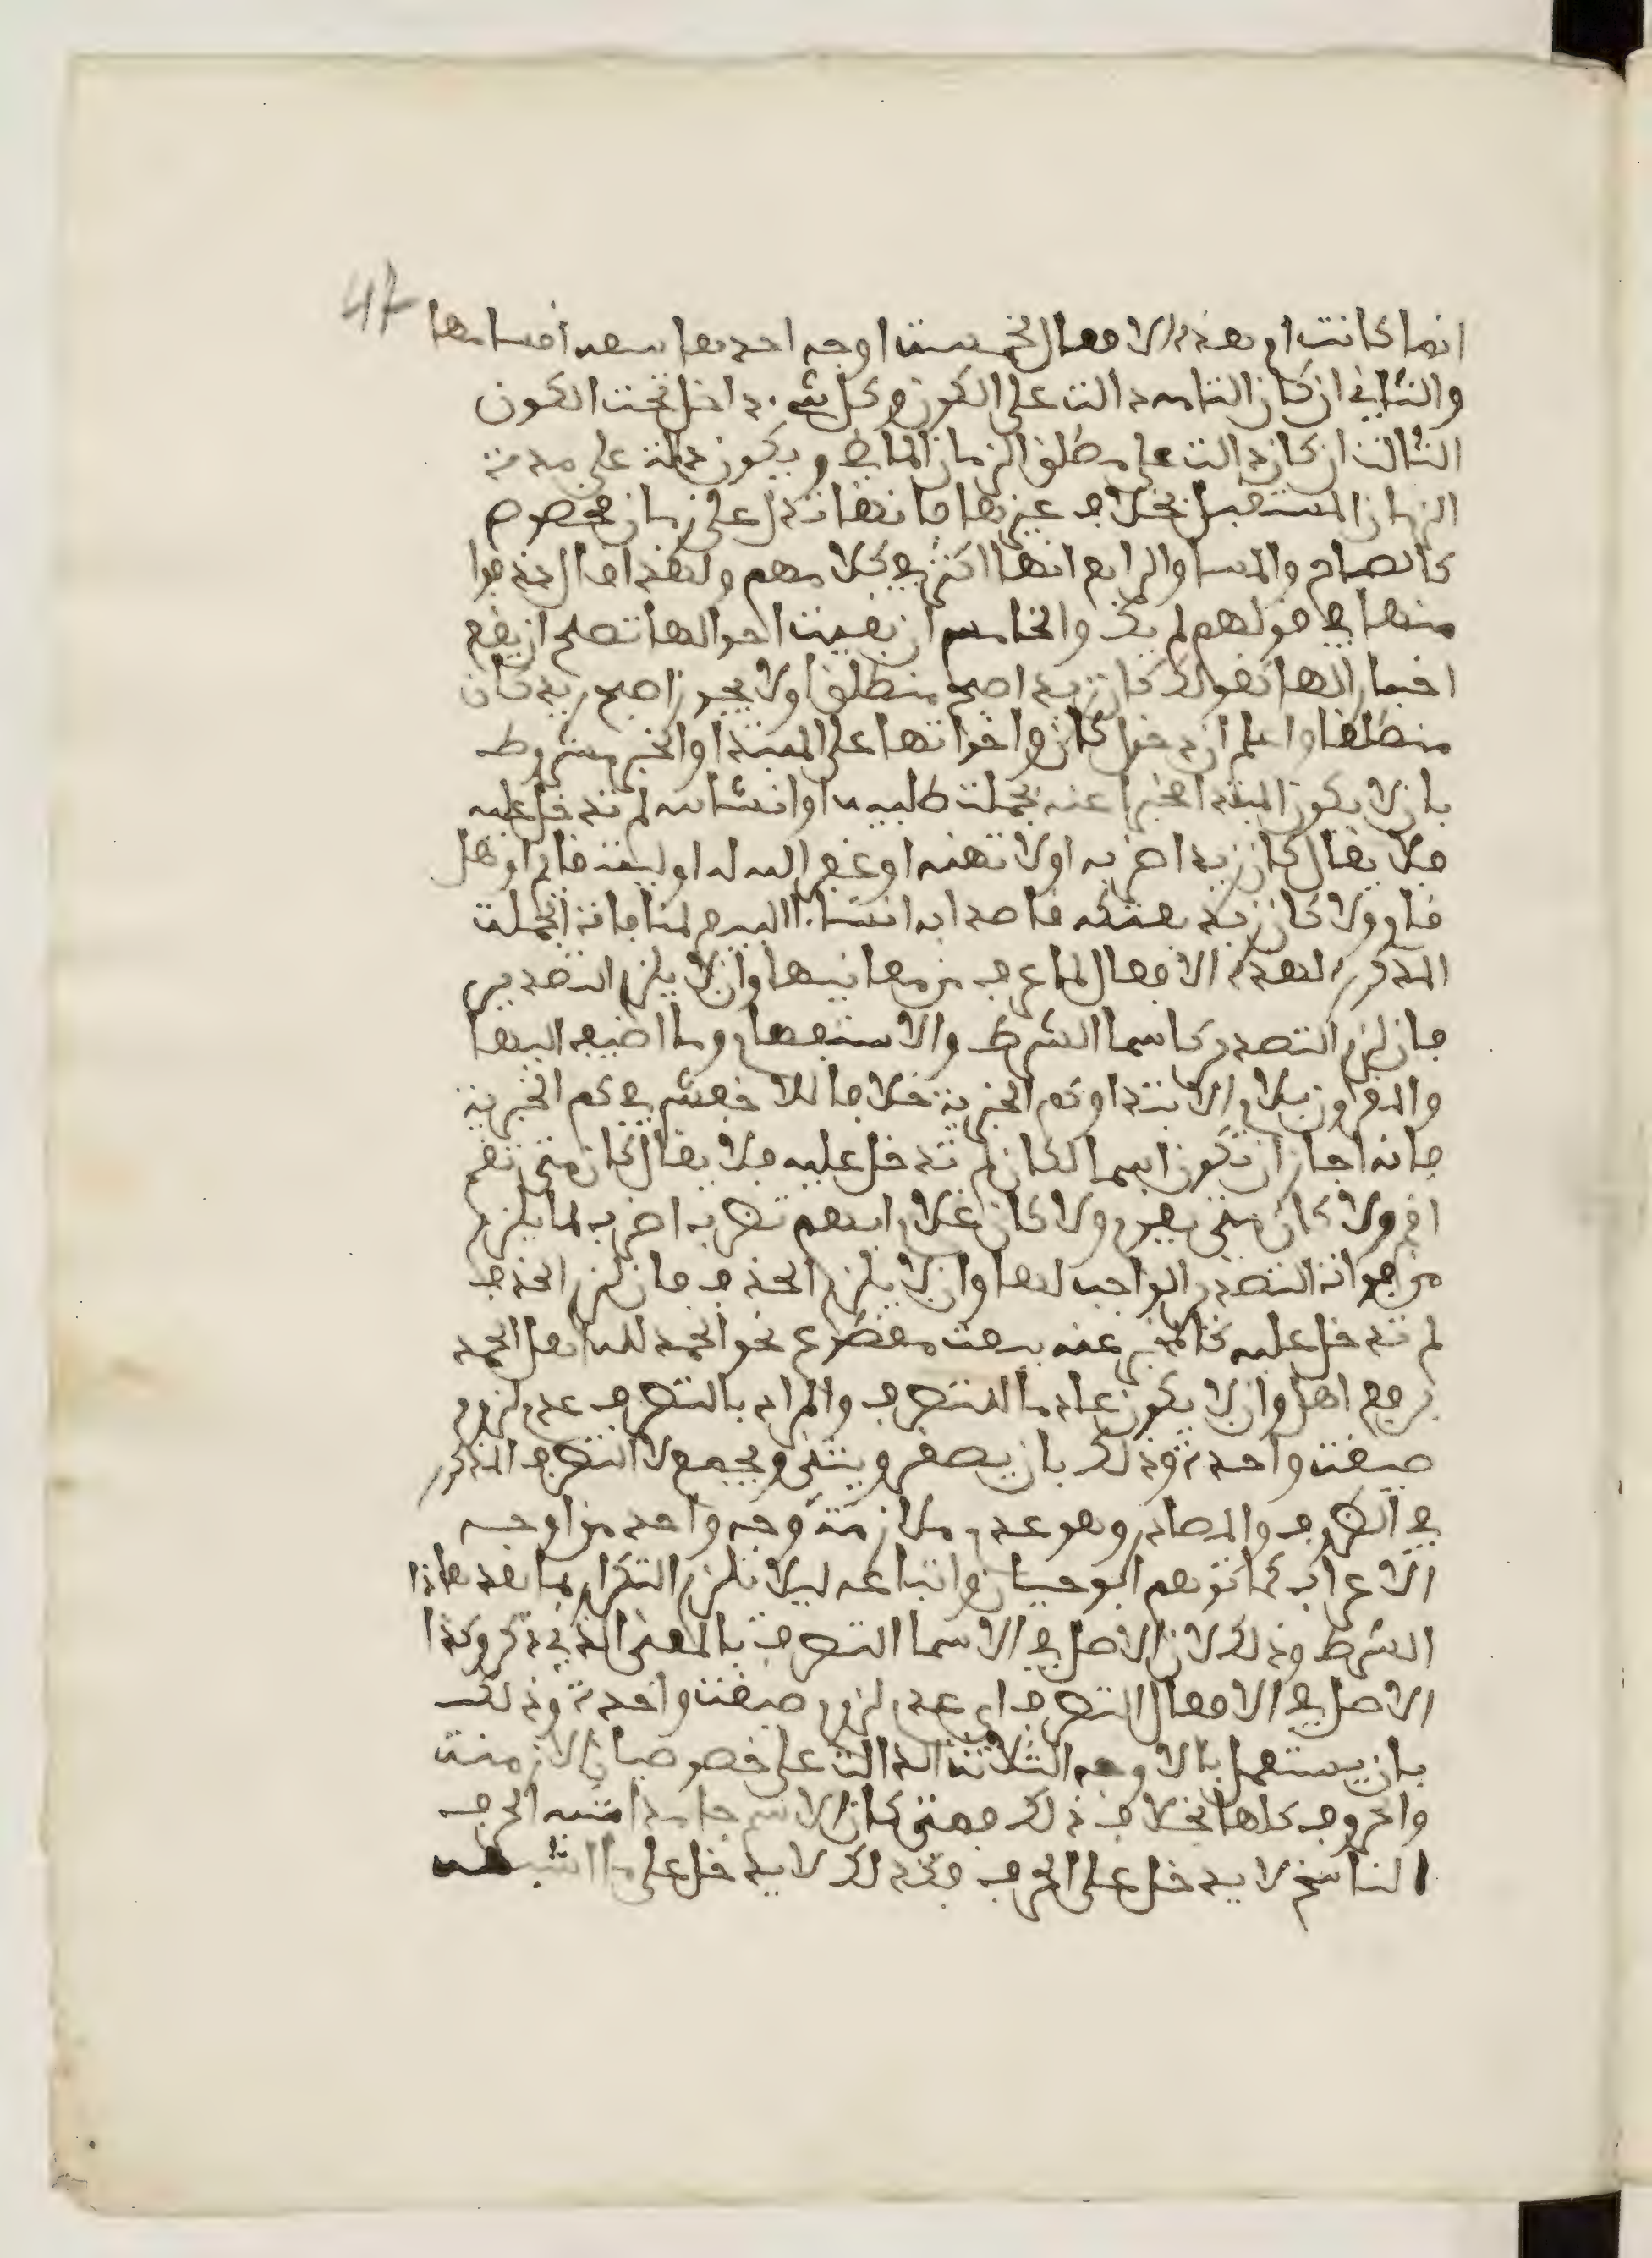 47
انما كانت ام هذه الافعال لخمست اوجه احدها سعه اقسامها
والثاني ان كان التامه دالت على الكون وكل شيء داخل تحت الكون
الثالث ان كان دالت على مطلق الزمان الماضي ويكون دالت على مدة
الزمان المستقبل بخلاف غيرها فانها تدل على زمان مخصوص
كالصباح والمسا والرابع انها اكثر في كلامهم ولهذا قال حذفوا
منها في قولهم لم يك والخامس ان بقيت احوالها تصلح ان يقع
اخبارا لها كقولك كان زيد اصبح منطلقا ولا يجوز اصبح زيد كان
منطلقا واعلم ان دخول كان واخواتها على المبتدا والخبر مشروط
بان لا يكون المبتدا مخبرا عنه بجملت طلبيه او انشاىه لم تدخل عليه
فلا يقال كان زيد اضربه او لا تهنه او غفر الله له او ليت قام او هل
قام ولا كان زيد بعتكه قاصدا به انشا البيع لمنافاة الجملت
المذكورة لهذه الافعال لما عرف من معانيها وان لا يلزم التصدير
فان لزم التصدر كاسما الشرط والاستفهام وما اضيف اليها
والمقرون بلام الابتدا وكم الخبرية خلافا للاخفش في كم الخبرية
فانه اجاز ان تكون اسما لكان لم تدخل عليه فلا يقال كان متى تقم
اقم ولا كان متى يقوم ولا كان غلام ايهم تضربه اضربه لما يلزم
من فوات التصدر الواجب لها وان لا يلزم الحذف فان لزم الحذف
لم تدخل عليه كالمخبر عنه بنعت مقطوع نحو الحمد لله اهل الحمد
برفع اهل وان لا يكون عادما للتصرف والمراد بالتصرف عدم لزوم
صيغت واحدة وذلك بان يصغر ويثنى ويجمع لا التصرف المذكور
في الظروف والمصادر وهو عدم ملازمة وجه واحد من اوجه
الاعراب كما توهم ابو حيان واتباعه ليلا يلزم التكرار بما بعد هاذا
الشرط وذلك لان الاصل في الاسما التصرف بالمعنى الذي ذكر وكذا
الاصل في الافعال التصرف اي عدم لزوم صيغت واحدة وذلك
بان يستعمل بالاوجه الثلاثت الدالت على خصوصيات الازمنت
والحروف كلها بخلاف ذلك فمتى كان الاسم جامدا اشبه الحرف
الناسخ لا يدخل على الحرف فكذلك لا يدخل على ما اشبهه